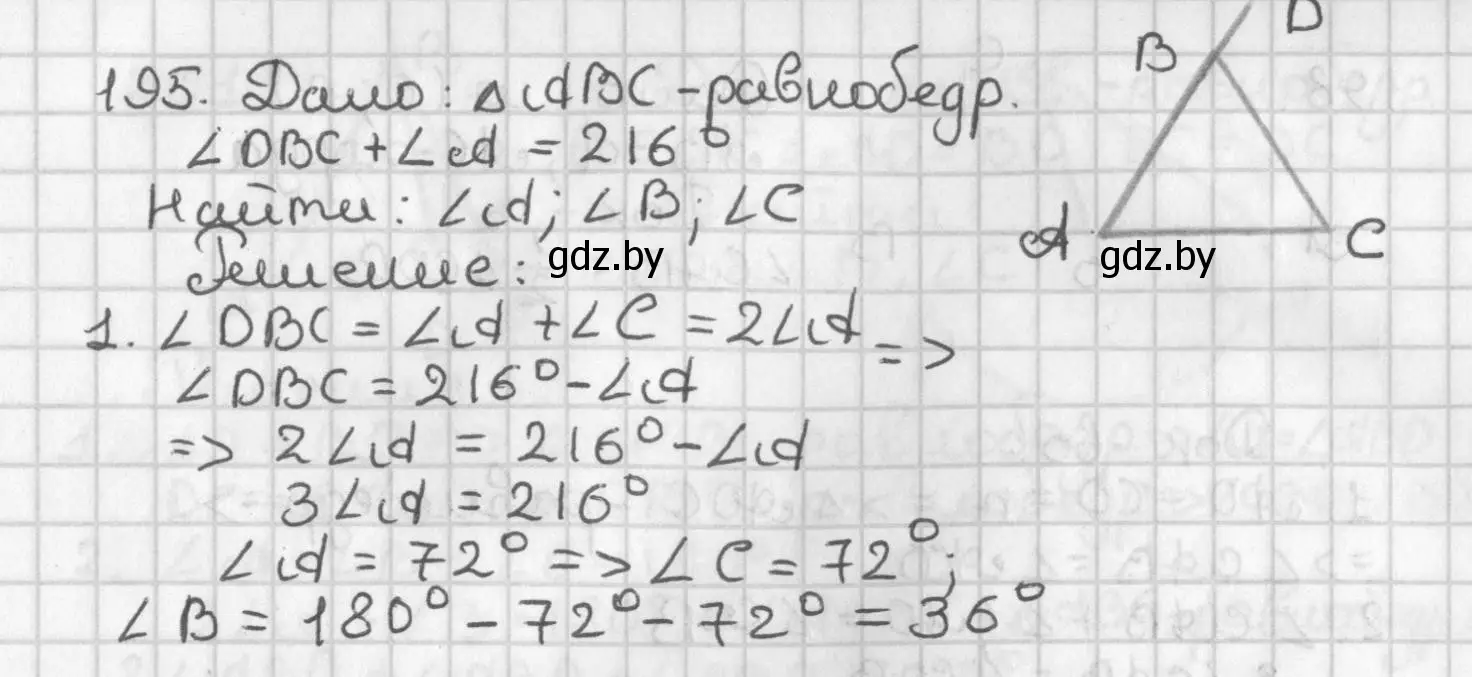 195. Дано: △ABC - равнобедр.
∠DBC + ∠A = 216°
Найти: ∠A; ∠B; ∠C
Решение:
1. ∠DBC = ∠A + ∠C = 2∠A =>
∠DBC = 216° - ∠A
=> 2∠A = 216° - ∠A
3∠A = 216°
∠A = 72° => ∠C = 72°;
∠B = 180° - 72° - 72° = 36°
B D
A C
gdz.by gdz.by